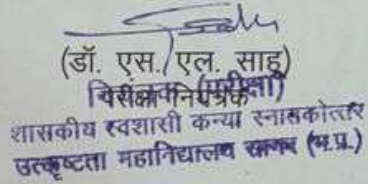 (डॉ. एस. एल. साहू)
शासकीय स्वशासी कन्या स्नातकोत्तर
उत्कृष्टता महाविद्यालय सागर (म.प्र.)